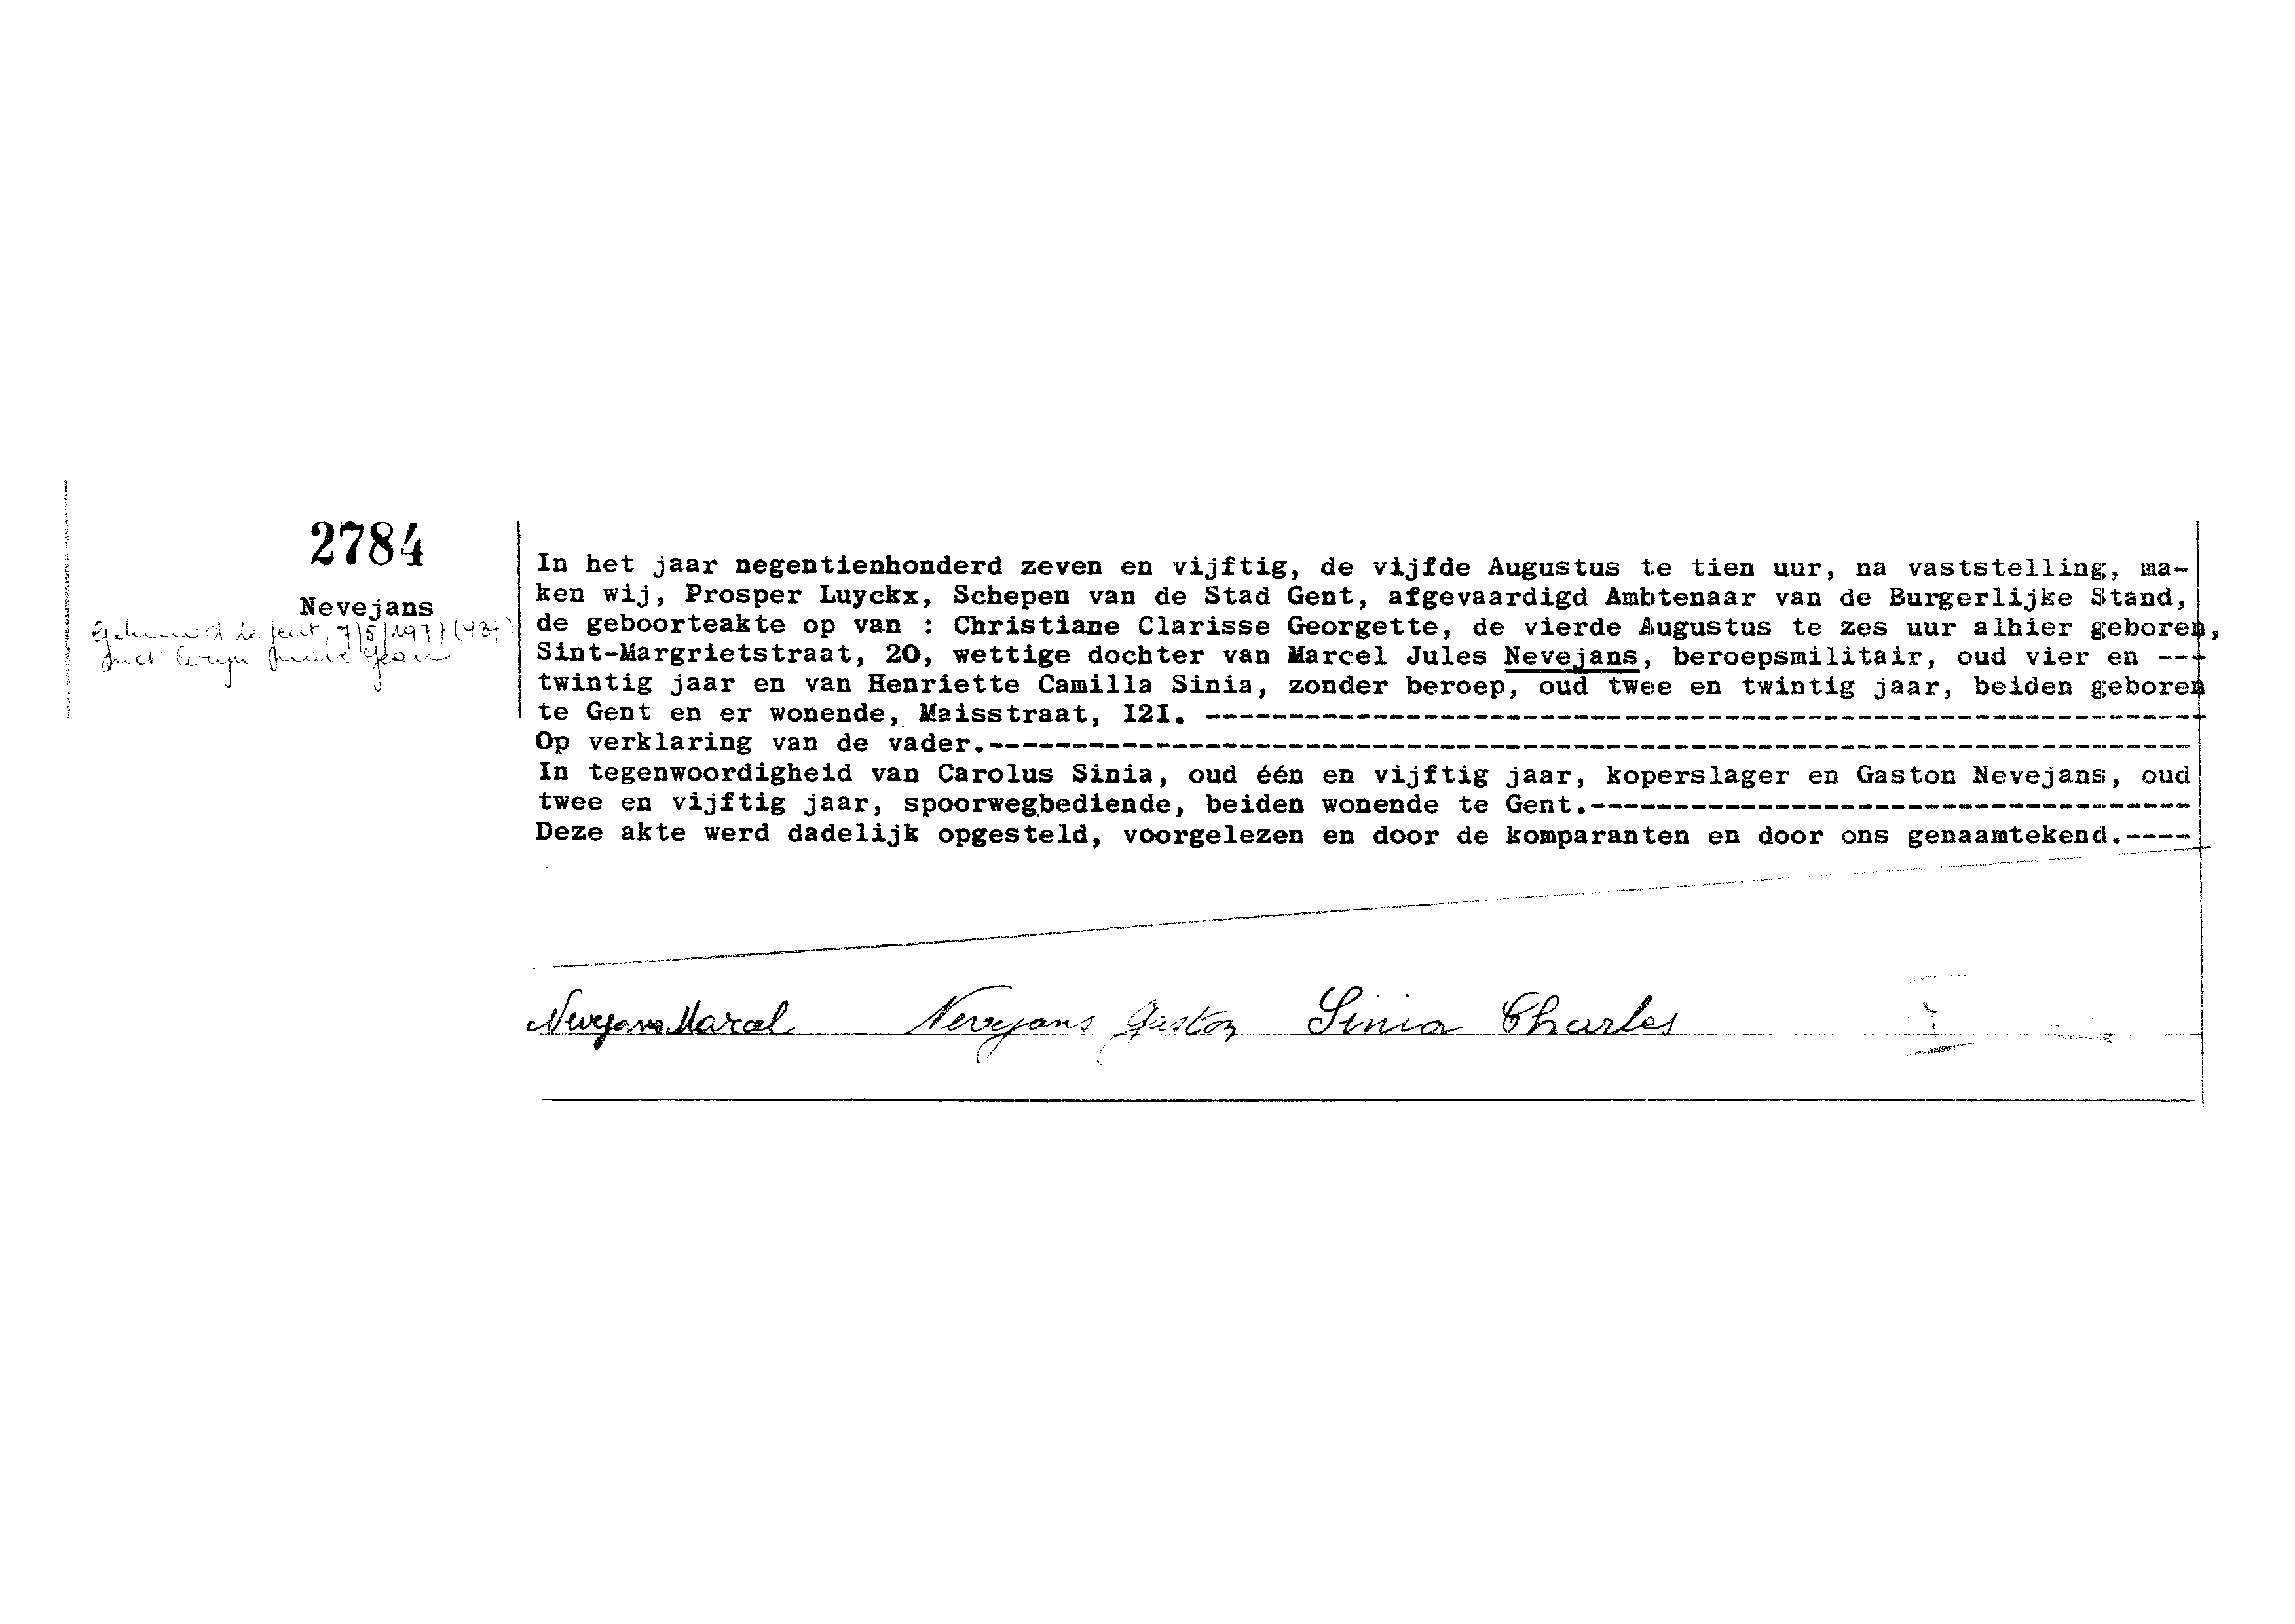 2784
Nevejans
te Gent, 7/5/1977
In het jaar negentienhonderd zeven en vijftig, de vijfde Augustus te tien uur, na vaststelling, ma-
ken wij, Prosper Luyckx, Schepen van de Stad Gent, afgevaardigd Ambtenaar van de Burgerlijke Stand,
de geboorteakte op van : Christiane Clarisse Georgette, de vierde Augustus te zes uur alhier geboren,
Sint-Margrietstraat, 20, wettige dochter van Marcel Jules Nevejans, beroepsmilitair, oud vier en ---
twintig jaar en van Henriette Camilla Sinia, zonder beroep, oud twee en twintig jaar, beiden geboren
te Gent en er wonende, Maisstraat, I2I. ------------------------------------------------------------
Op verklaring van de vader.-------------------------------------------------------------------------
In tegenwoordigheid van Carolus Sinia, oud één en vijftig jaar, koperslager en Gaston Nevejans, oud
twee en vijftig jaar, spoorwegbediende, beiden wonende te Gent.------------------------------------
Deze akte werd dadelijk opgesteld, voorgelezen en door de komparanten en door ons genaamtekend.----
Nevejans Marcel Nevejans Gaston Sinia Charles